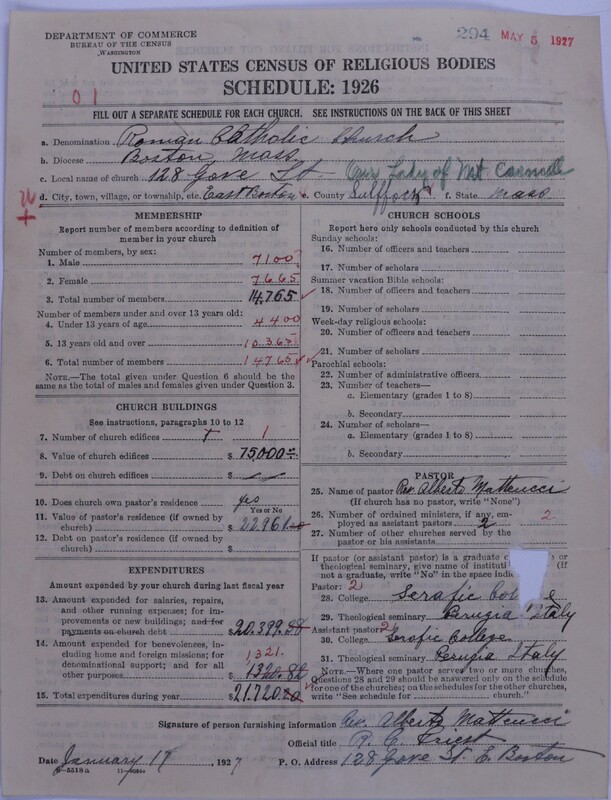 DEPARTMENT OF COMMERCE
BUREAU OF THE CENSUS
WASHINGTON
294 MAY 5 1927
UNITED STATES CENSUS OF RELIGIOUS BODIES
SCHEDULE: 1926
01
FILL OUT A SEPARATE SCHEDULE FOR EACH CHURCH. SEE INSTRUCTIONS ON THE BACK OF THIS SHEET
a. Denomination Roman Catholic Church
b. Diocese Boston, Mass.
c. Local name of church 128 Gove St - Our Lady of Mt Carmel
d. City, town, village, or township, etc. East Boston e. County Sulffock f. State Mass
MEMBERSHIP
Report number of members according to definition of member in your church
Number of members, by sex:
1. Male 7100
2. Female 7665
3. Total number of members 14,765
Number of members under and over 13 years old:
4. Under 13 years of age 4400
5. 13 years old and over 10,365
6. Total number of members 14765
NOTE.—The total given under Question 6 should be the same as the total of males and females given under Question 3.
CHURCH BUILDINGS
See instructions, paragraphs 10 to 12
7. Number of church edifices 1
8. Value of church edifices $ 75000
9. Debt on church edifices $
10. Does church own pastor's residence yes
Yes or No
11. Value of pastor's residence (if owned by church) $ 22961
12. Debt on pastor's residence (if owned by church) $
EXPENDITURES
Amount expended by your church during last fiscal year
13. Amount expended for salaries, repairs, and other running expenses; for improvements or new buildings; and for payments on church debt $ 20.399.
14. Amount expended for benevolences, including home and foreign missions; for denominational support; and for all other purposes $ 1320.82
1,321.
15. Total expenditures during year $ 21.720.
CHURCH SCHOOLS
Report here only schools conducted by this church
Sunday schools:
16. Number of officers and teachers
17. Number of scholars
Summer vacation Bible schools:
18. Number of officers and teachers
19. Number of scholars
Week-day religious schools:
20. Number of officers and teachers
21. Number of scholars
Parochial schools:
22. Number of administrative officers
23. Number of teachers—
a. Elementary (grades 1 to 8)
b. Secondary
24. Number of scholars—
a. Elementary (grades 1 to 8)
b. Secondary
PASTOR
25. Name of pastor Rev. Alberto Matteucci
(If church has no pastor, write "None")
26. Number of ordained ministers, if any, employed as assistant pastors 2 2
27. Number of other churches served by the pastor or his assistants
If pastor (or assistant pastor) is a graduate or
theological seminary, give name of (If
not a graduate, write "No" in the space
Pastor: 2
28. College Serafic
29. Theological seminary Perugia Italy
Assistant pastor 2
30. College Serafic College
31. Theological seminary Perugia Italy
NOTE.—Where one pastor serves two or more churches, Questions 28 and 29 should be answered only on the schedule for one of the churches; on the schedules for the other churches, write "See schedule for church."
Signature of person furnishing information Rev. Alberto Matteucci
Official title R. C. Priest
Date January 19, 1927 P. O. Address 128 Gove St. E. Boston